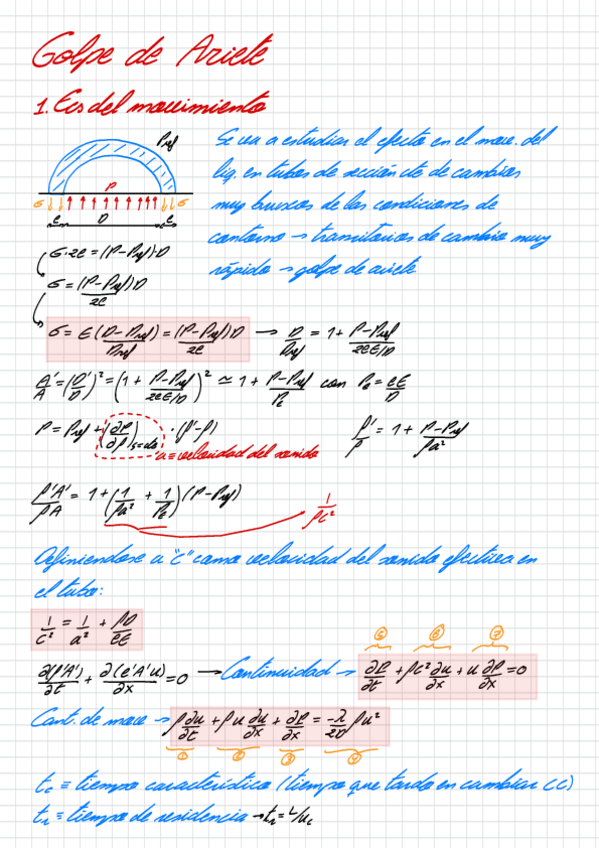 Golpe de Ariete
1. Ecs del movimiento
Se va a estudiar el efecto en el mov. del
liq. en tubos de sección cte de cambios
muy bruscos de las condiciones de
contorno → transitorios de cambio muy
rápido → golpe de ariete
Pref
P
σ σ
e D e
σ·2e = (P-Pref)·D
σ = (P-Pref)D/2e
σ = E(D-Dref)/Dref = (P-Pref)D/2e → D/Dref = 1 + (P-Pref)/(2eE/D)
A'/A = (D'/D)² = (1 + (P-Pref)/(2eE/D))² ≃ 1 + (P-Pref)/Pe con Pe = eE/D
P = Pref + (∂P/∂ρ)s=cte · (ρ'-ρ) ρ'/ρ = 1 + (P-Pref)/ρa²
a ≡ velocidad del sonido
ρ'A'/ρA = 1 + (1/ρa² + 1/Pe)(P-Pref)
1/ρc²
Definiendose a "c" como velocidad del sonido efectiva en
el tubo:
1/c² = 1/a² + ρD/eE
⑤ ⑥ ⑦
∂(ρ'A')/∂t + ∂(ρ'A'u)/∂x = 0 → Continuidad → ∂P/∂t + ρc² ∂u/∂x + u ∂P/∂x = 0
Cant. de mov → ρ ∂u/∂t + ρu ∂u/∂x + ∂P/∂x = -λ/2D ρu²
① ② ③ ④
tc ≡ tiempo característico (tiempo que tardo en cambiar CC)
tr ≡ tiempo de residencia → tr = L/uc